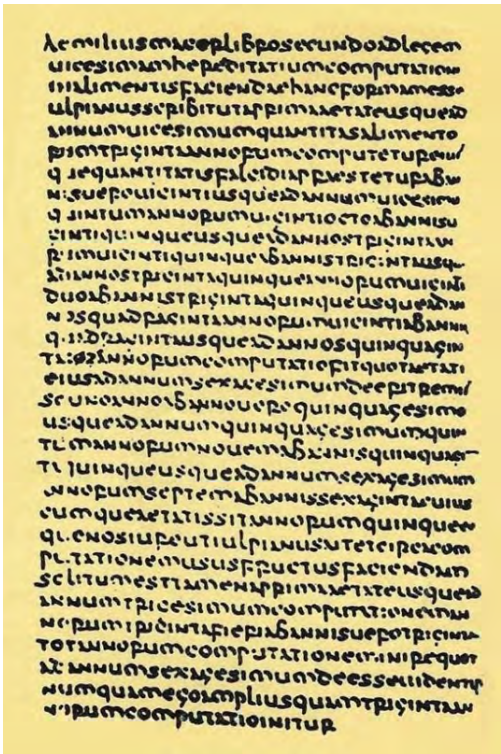 Aemiliusmacerlibrosecundoadlegem
uicesimamhereditatiumcomputation
inalimentisfaciendaehancformamesse
ulpianusscribitutaprimaaetateusquead
annumuicesimumquantitasalimento
rumtrigintaannorumcomputetureius
quequantitatisfalcidiapraesteturaban
nisuerouigintiusqueadannumuicesim
quintumannorumuigintioctoabannisu
igintiquinqueusqueadannostrigintaan
rumuigintiquinqueabannistrigintausqu
adannostrigintaquinqueannorumuiginti
duoabannistrigintaquinqueusqueadan
nosquadragintaannorumuigintiabanni
quadragintausqueadannosquinquagin
tatotannorumcomputatiofitquotaetati
eiusadannumsexagesimumdeeritremis
sounoannoabannoueroquinquagesimo
usqueadannumquinquagesimumquin
tumannorumnouemabannisquinquagi
taquinqueusqueadannumsexagesimum
annorumseptemabannissexagintacuius
cumqueaetatissitannorumquinqueeo
quenosiureutiulpianusaitetcircacom
putationemususfructusfaciendam
solitumesttamenaprimaaetateusquead
annumtricesimumcomputationeman
norumtrigintafieriabannisuerotriginta
totannorumcomputationeminirequot
adannumsexagesimumdeesseuidentur
numquamergoampliusquamtrigintaan
norumcomputatioinitur